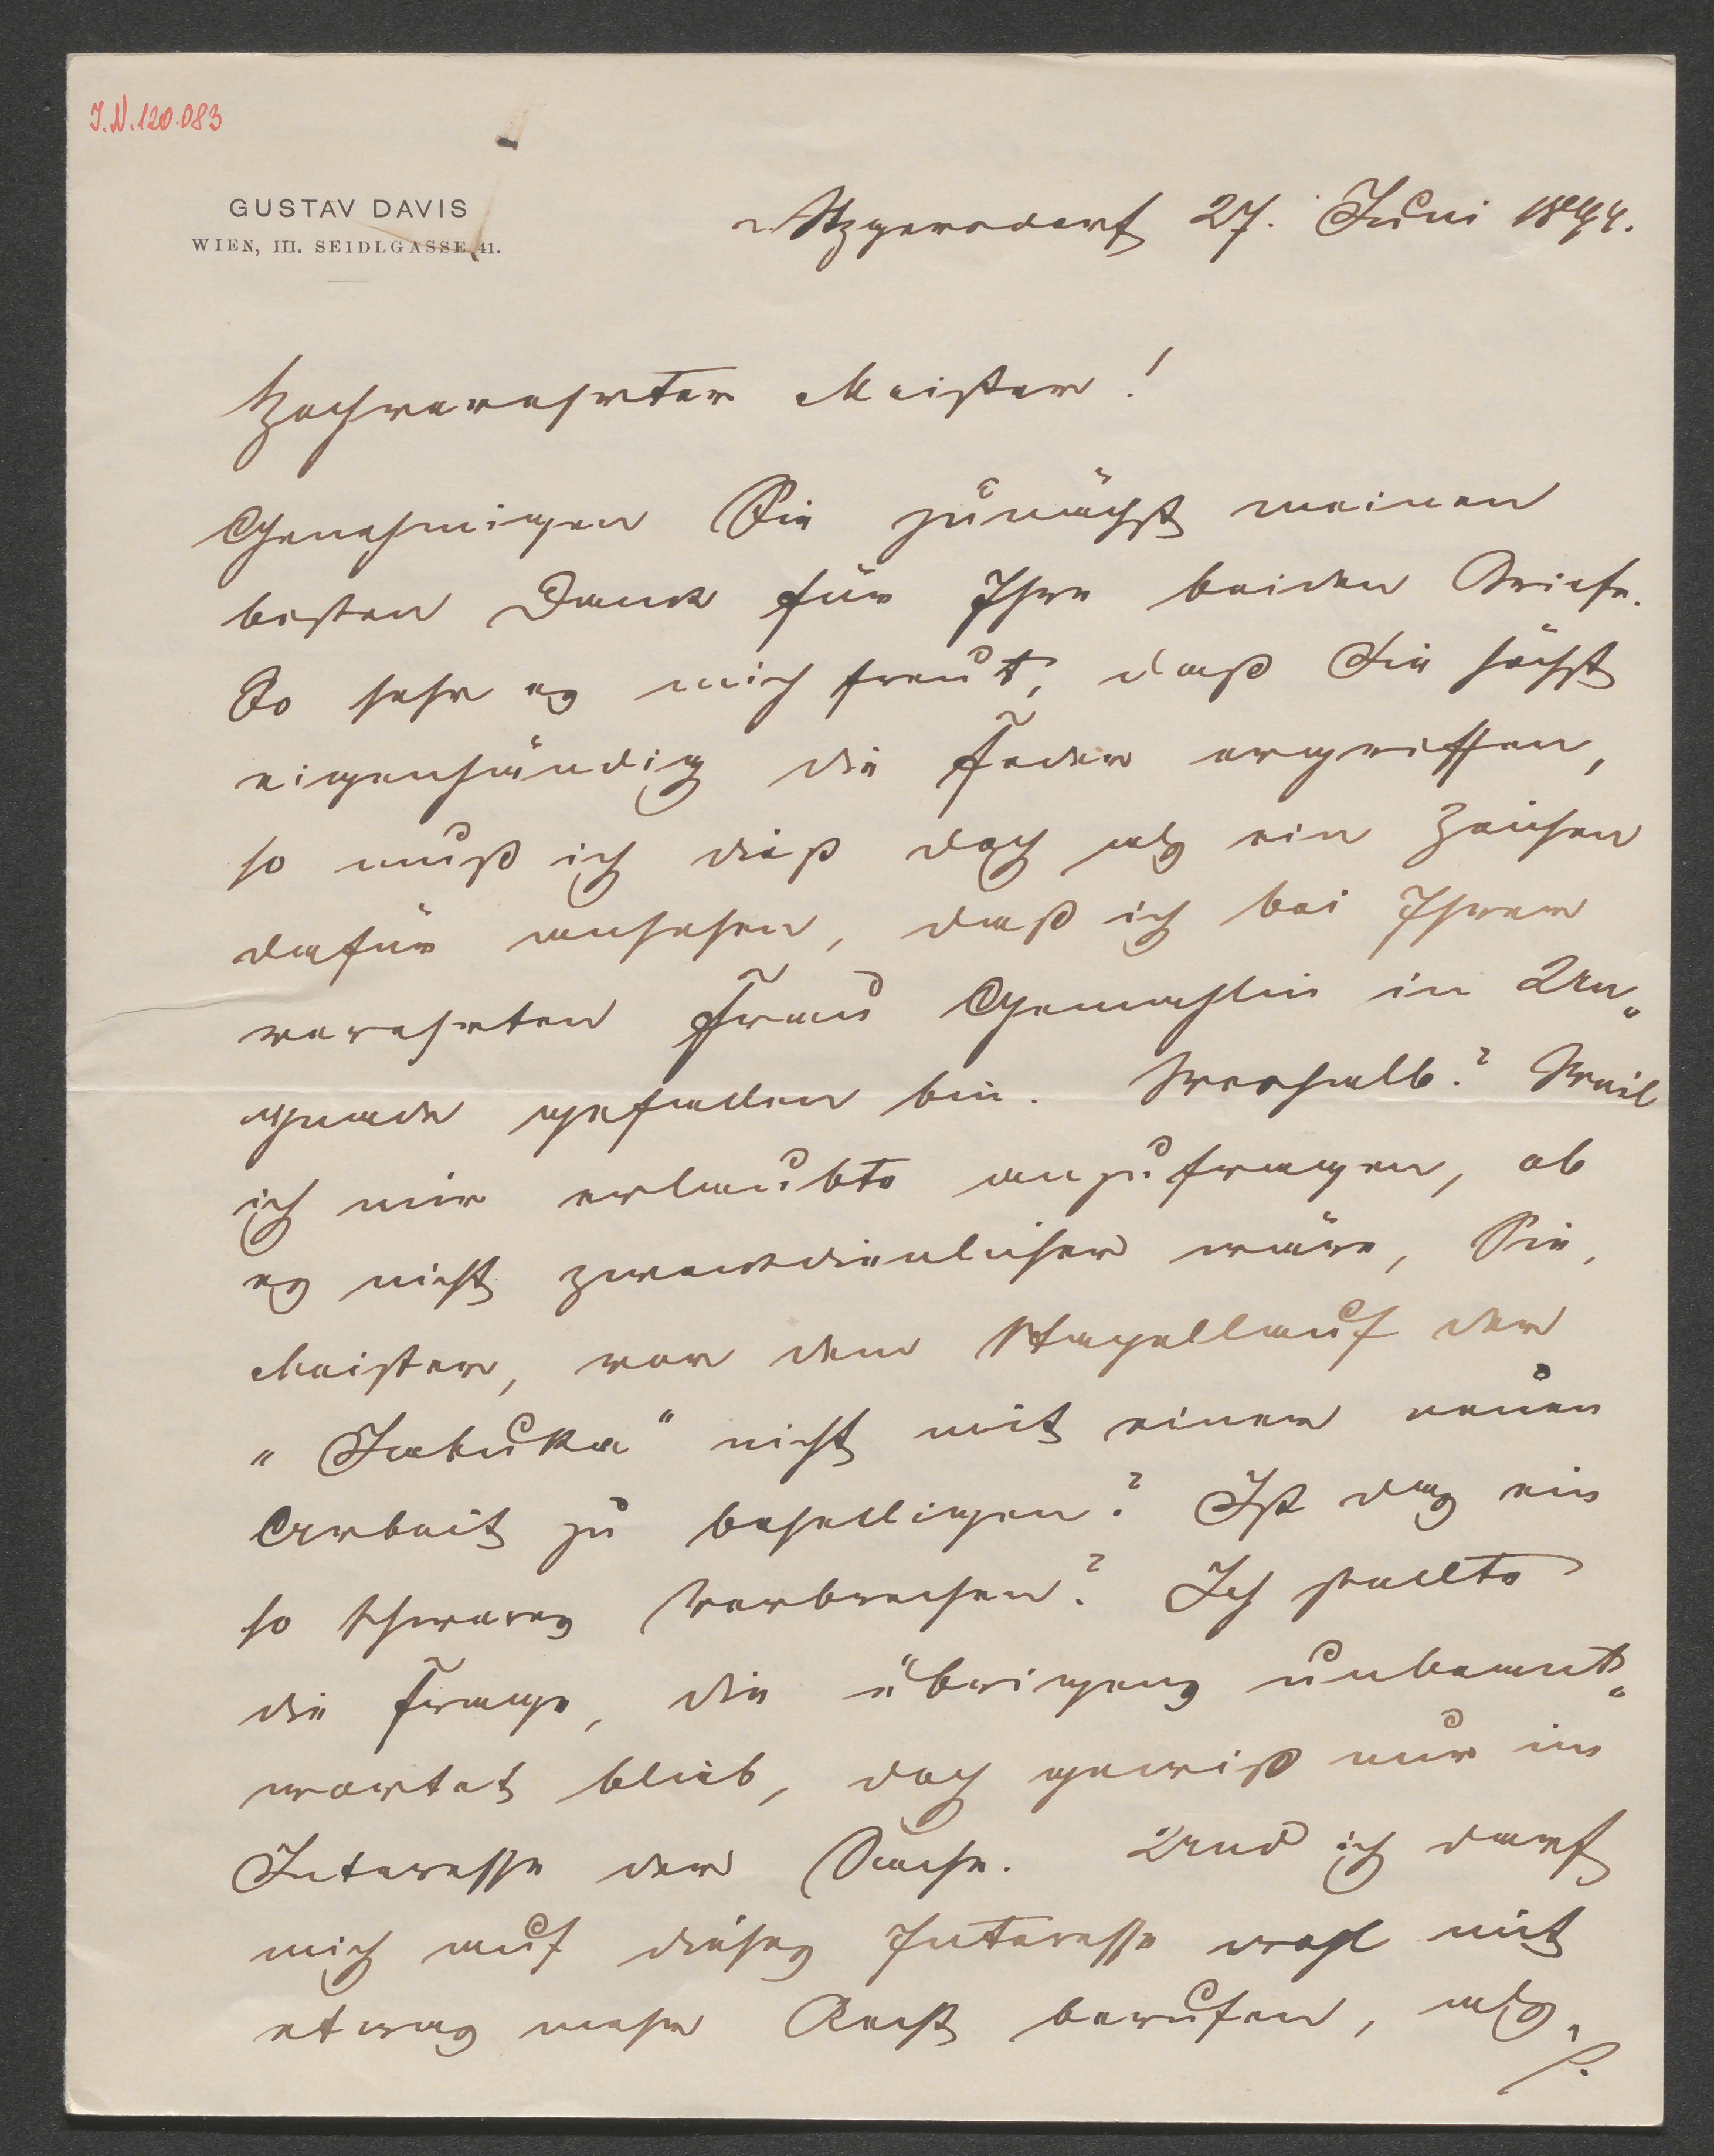 I.N. 120.083
GUSTAV DAVIS
WIEN, III. SEIDLGASSE 41.
Atzgersdorf 27. Juni 1894.
Hochverehrter Meister!
Genehmigen Sie zunächst meinen
besten Dank für Ihre beiden Briefe.
So sehr es mich freut, daß Sie höchst
eigenhändig die Feder ergriffen,
so muß ich dieß doch als ein Zeichen
dafür ansehen, daß ich bei Ihrer
verehrten Frau Gemahlin in Un„
gnade gefallen bin. Weshalb? Weil
ich mir erlaubte anzufragen, ob
es nicht zweckdienlicher wäre, Sie,
Meister, vor dem Stapellauf der
„Jabuka“ nicht mit einer neuen
Arbeit zu behelligen? Ist das ein
so schweres Verbrechen? Ich stellte
die Frage, die übrigens unbeant„
wortet blieb, doch gewiß nur im
Interesse der Sache. Und ich darf
mich auf dieses Interesse wohl mit
etwas mehr Recht berufen, als